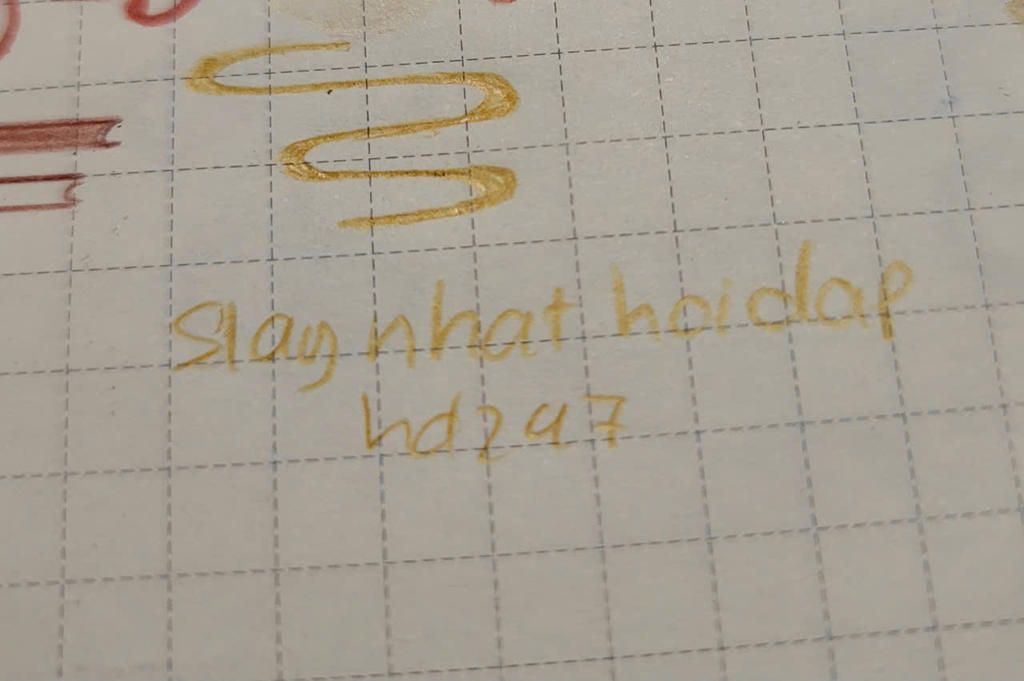 Slay nhat hoidap
hd247